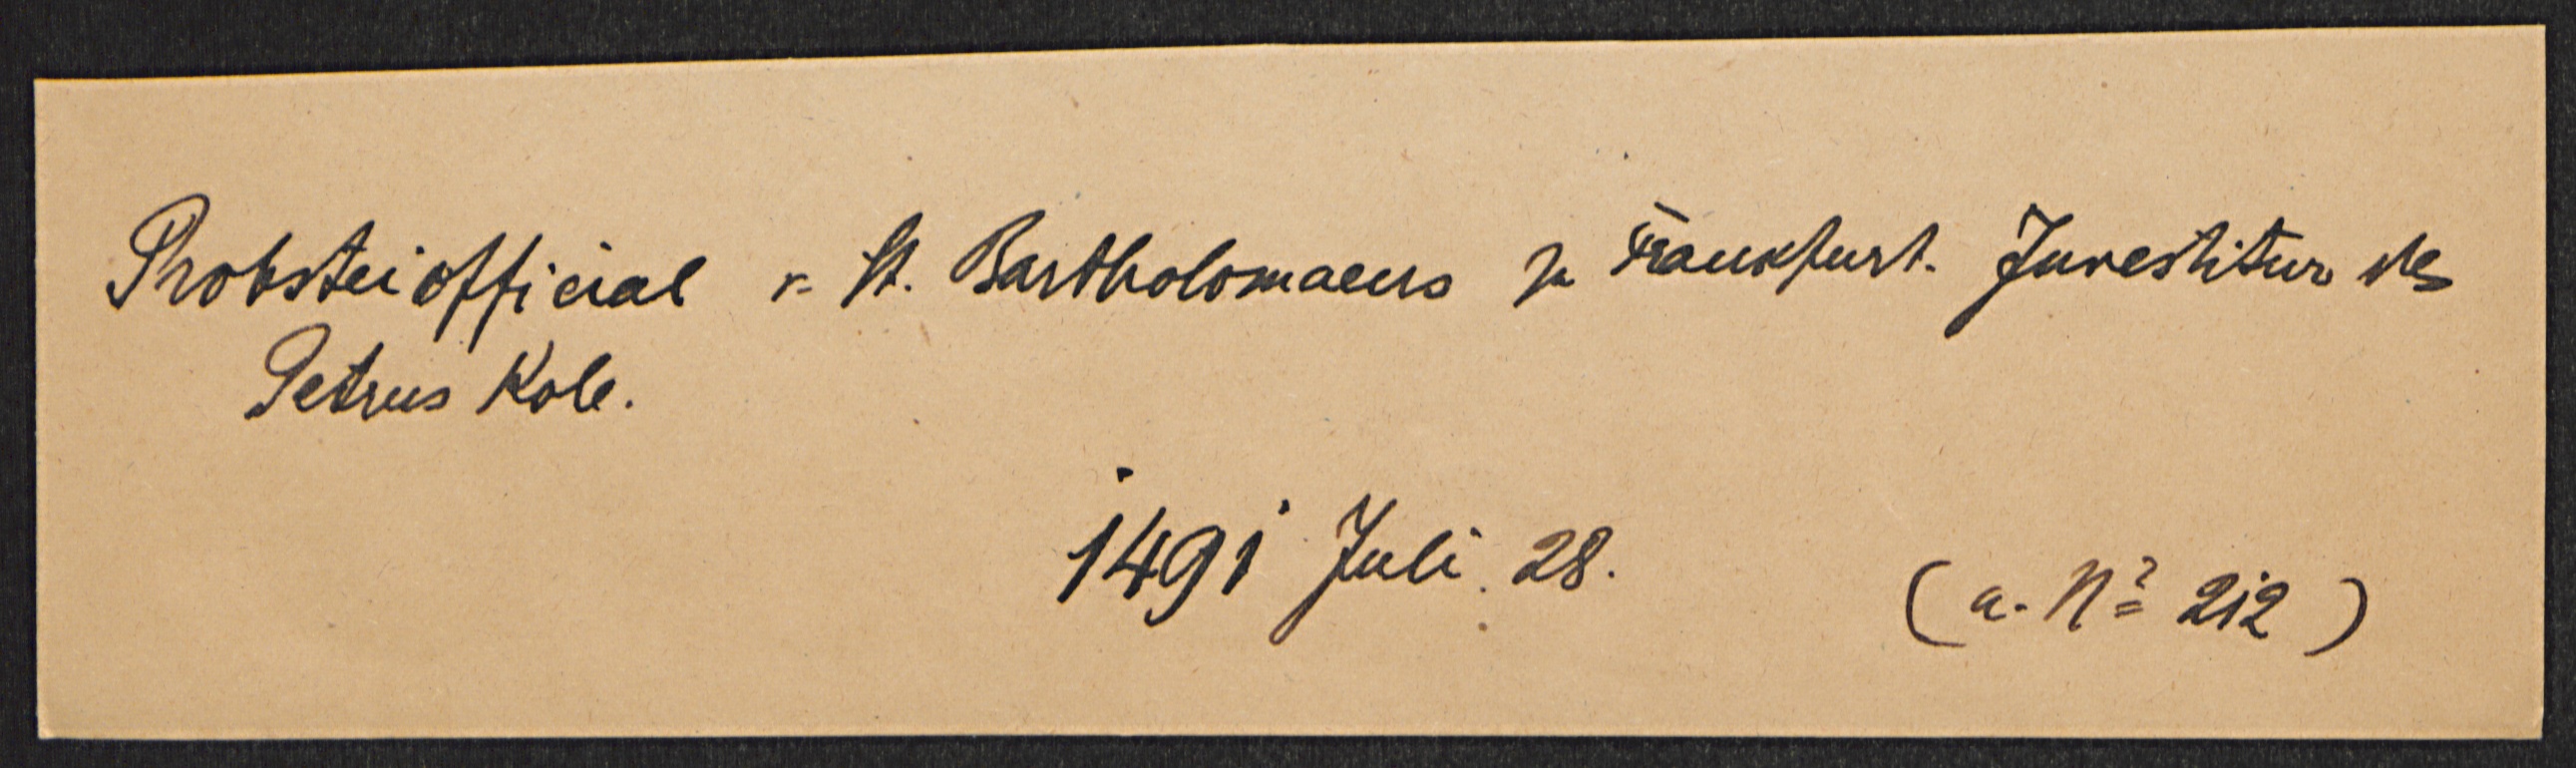 Probsteiofficial v. St. Bartholomaeus zu Frankfurt. Investitur des
Petrus Kole.
1491 Juli. 28.
(a. No 212)